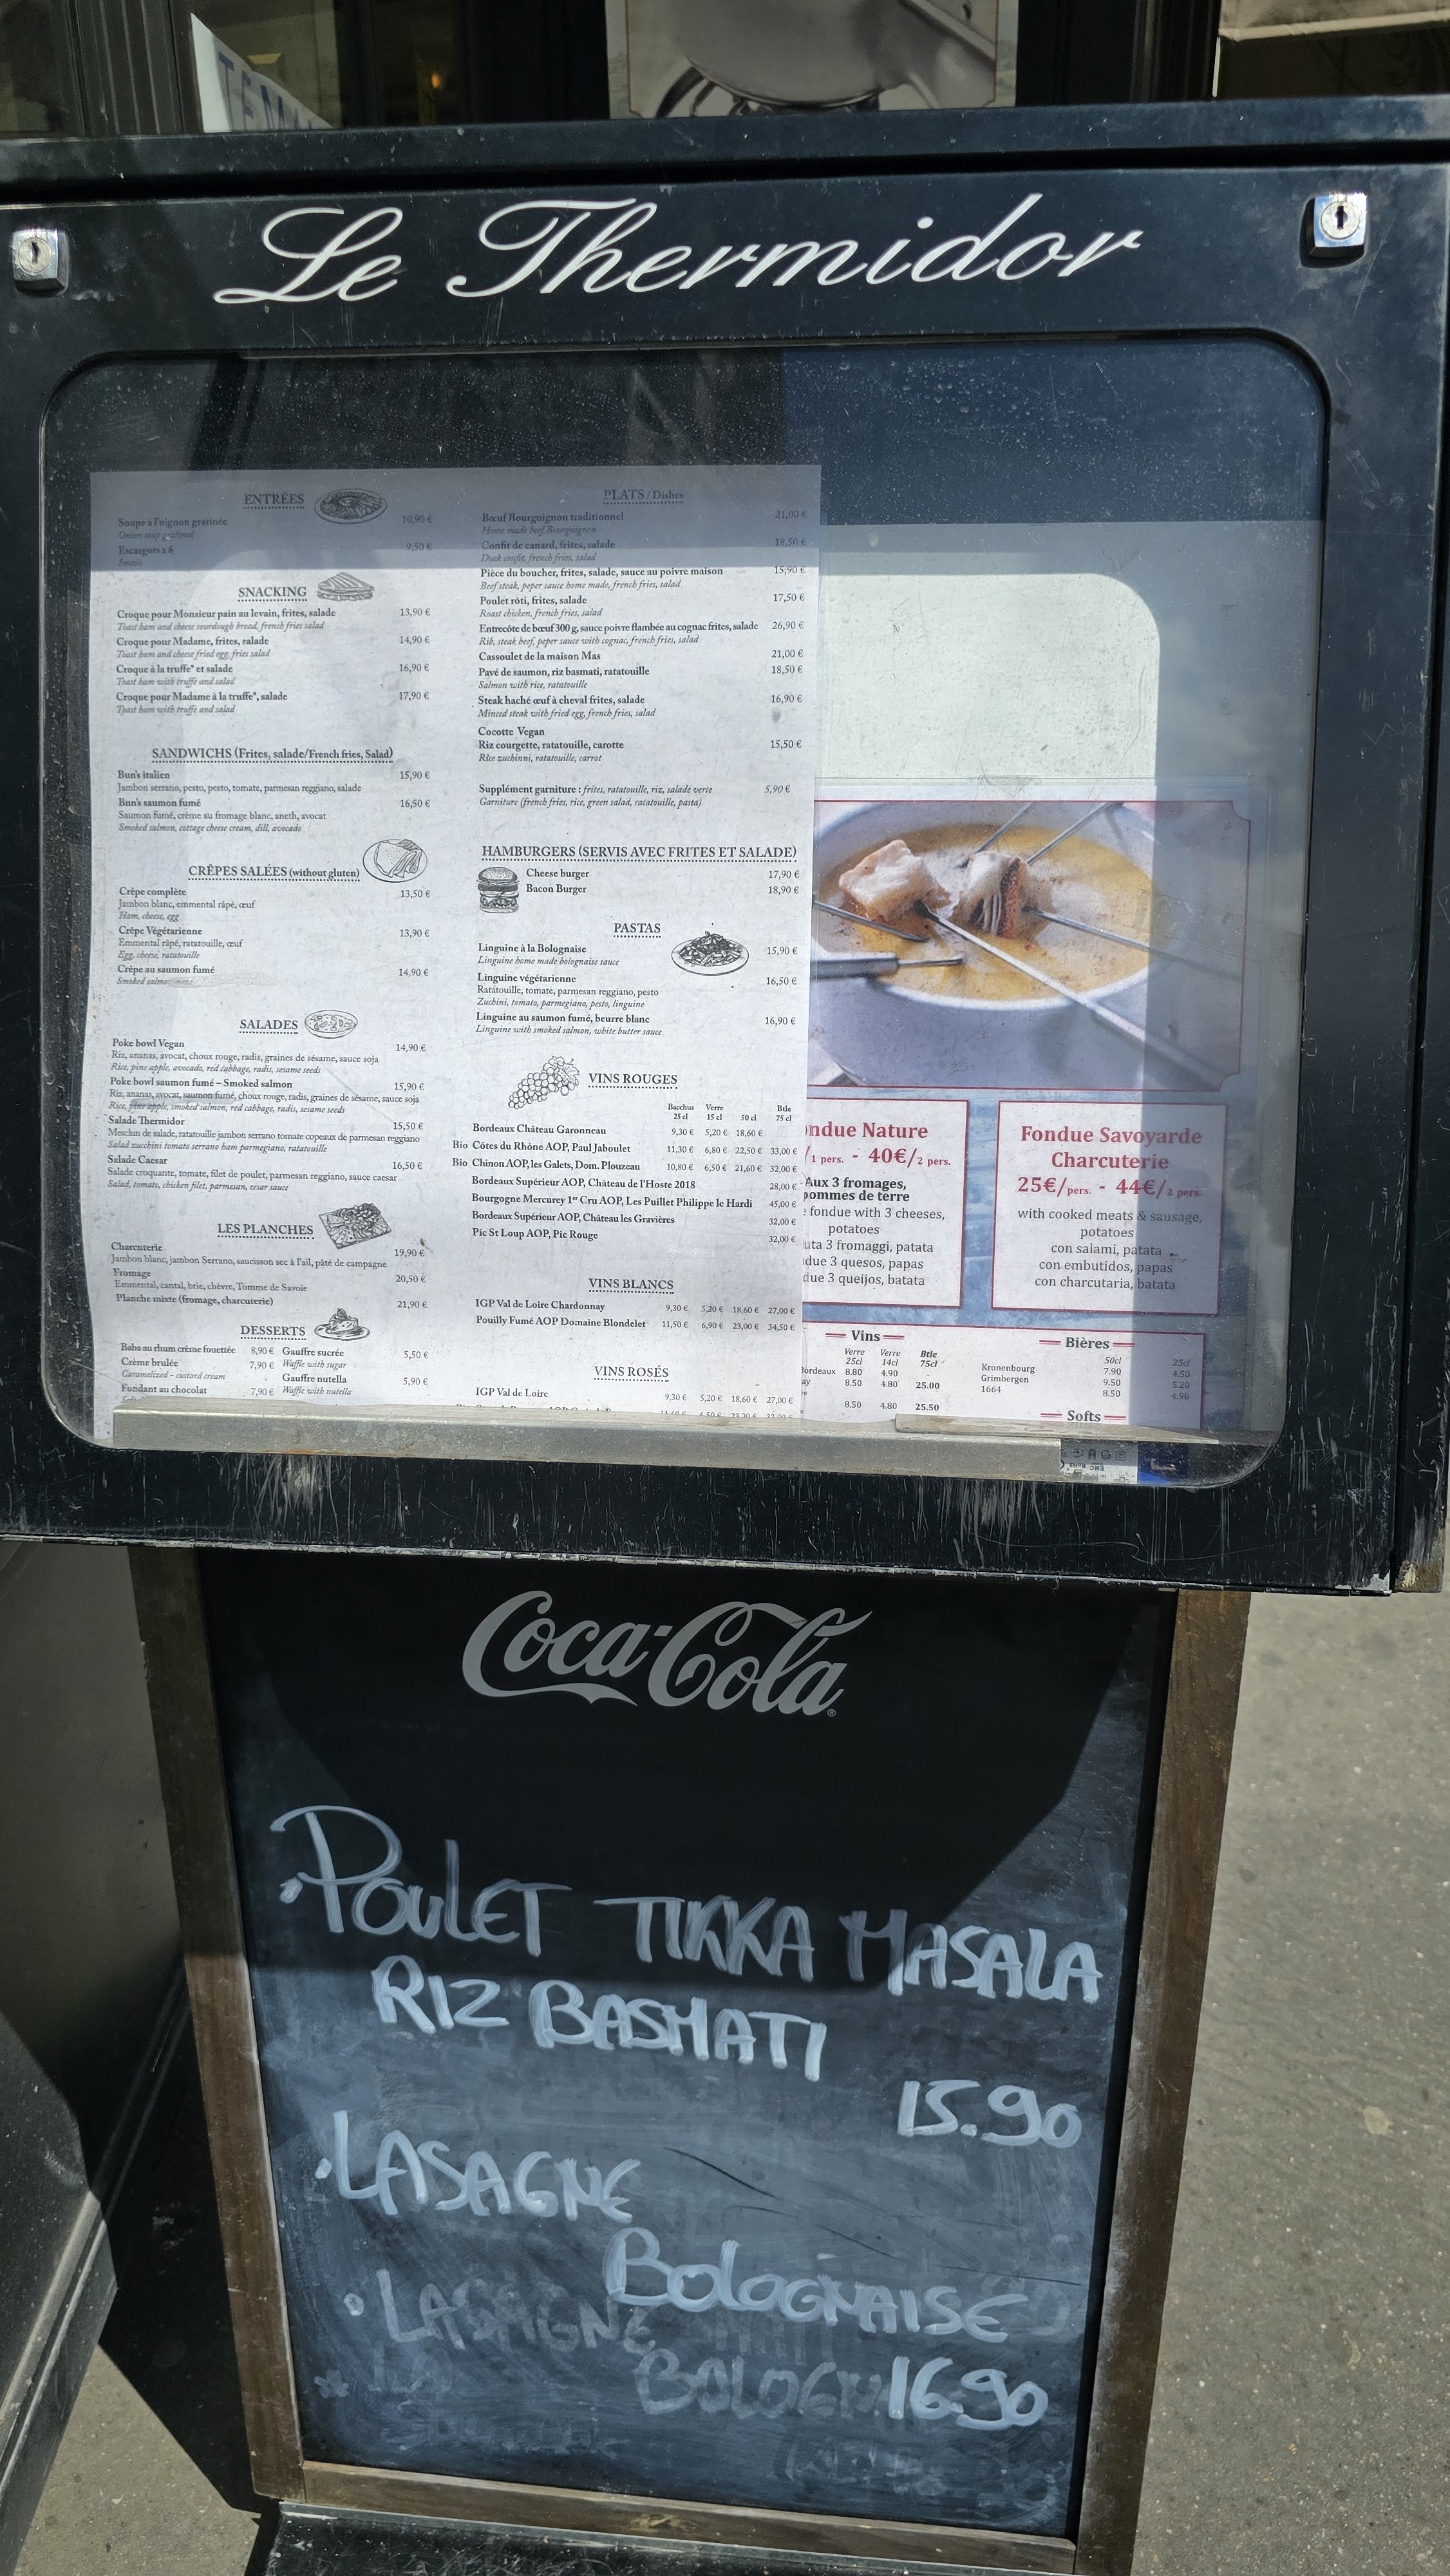 Le Thermidor
ENTRÉES
Soupe à l'oignon gratinée 10,90 €
Onion soup gratined
Escargots x 6 9,50 €
Snails
SNACKING
Croque pour Monsieur pain au levain, frites, salade 13,90 €
Toast ham and cheese sourdough bread, french fries salad
Croque pour Madame, frites, salade 14,90 €
Toast ham and cheese fried egg, fries salad
Croque à la truffe* et salade 16,90 €
Toast ham with truffe and salad
Croque pour Madame à la truffe*, salade 17,90 €
Toast ham with truffe and salad
SANDWICHS (Frites, salade/French fries, Salad)
Bun's italien 15,90 €
Jambon serrano, pesto, pesto, tomate, parmesan reggiano, salade
Bun's saumon fumé 16,50 €
Saumon fumé, crème au fromage blanc, aneth, avocat
Smoked salmon, cottage cheese cream, dill, avocado
CRÊPES SALÉES (without gluten)
Crêpe complète 13,50 €
Jambon blanc, emmental râpé, œuf
Ham, cheese, egg
Crêpe Végétarienne 13,90 €
Emmental râpé, ratatouille, œuf
Egg, cheese, ratatouille
Crêpe au saumon fumé 14,90 €
Smoked
SALADES
Poke bowl Vegan 14,90 €
Riz, ananas, avocat, choux rouge, radis, graines de sésame, sauce soja
Rice, pine apple, avocado, red cabbage, radis, sesame seeds
Poke bowl saumon fumé – Smoked salmon 15,90 €
Riz, ananas, avocat, saumon fumé, choux rouge, radis, graines de sésame, sauce soja
Rice, pine apple, smoked salmon, red cabbage, radis, sesame seeds
Salade Thermidor 15,50 €
Mesclun de salade, ratatouille jambon serrano tomate copeaux de parmesan reggiano
Salad zucchini tomato serrano ham parmegiano, ratatouille
Salade Caesar 16,50 €
Salade croquante, tomate, filet de poulet, parmesan, sauce caesar
Salad, tomato, chicken filet, parmesan, cesar sauce
LES PLANCHES
Charcuterie 19,90 €
Jambon blanc, jambon Serrano, saucisson sec à l'ail, pâté de campagne
Fromage 20,50 €
Emmental, cantal, brie, chèvre, Tomme de Savoie
Planche mixte (fromage, charcuterie) 21,90 €
DESSERTS
Baba au rhum crème fouettée 8,90 €
Crème brulée 7,90 €
Caramelized - custard cream
Fondant au chocolat 7,90 €
Gauffre sucrée 5,50 €
Waffle with sugar
Gauffre nutella 5,90 €
Waffle with nutella
PLATS / Dishes
Bœuf Bourguignon traditionnel 21,00 €
Home made beef Bourguignon
Confit de canard, frites, salade 18,50 €
Duck confit, french fries, salad
Pièce du boucher, frites, salade, sauce au poivre maison 15,90 €
Beef steak, peper sauce home made, french fries, salad
Poulet rôti, frites, salade 17,50 €
Roast chicken, french fries, salad
Entrecôte de bœuf 300 g, sauce poivre flambée au cognac frites, salade 26,90 €
Rib, steak beef, peper sauce with cognac, french fries, salad
Cassoulet de la maison Mas 21,00 €
Pavé de saumon, riz basmati, ratatouille 18,50 €
Salmon with rice, ratatouille
Steak haché œuf à cheval frites, salade 16,90 €
Minced steak with fried egg, french fries, salad
Cocotte Vegan
Riz courgette, ratatouille, carotte 15,50 €
Rice zuchinni, ratatouille, carrot
Supplément garniture : frites, ratatouille, riz, salade verte 5,90 €
Garniture (french fries, rice, green salad, ratatouille, pasta)
HAMBURGERS (SERVIS AVEC FRITES ET SALADE)
Cheese burger 17,90 €
Bacon Burger 18,90 €
PASTAS
Linguine à la Bolognaise 15,90 €
Linguine home made bolognaise sauce
Linguine végétarienne 16,50 €
Ratatouille, tomate, parmesan reggiano, pesto
Zuchini, tomato, parmegiano, pesto, linguine
Linguine au saumon fumé, beurre blanc 16,90 €
Linguine with smoked salmon, white butter sauce
VINS ROUGES
Bacchus 25 cl Verre 15 cl 50 cl Btle 75 cl
Bordeaux Château Garonneau 9,30 € 5,20 € 18,60 €
Bio Côtes du Rhône AOP, Paul Jaboulet 11,30 € 6,80 € 22,50 € 33,00 €
Bio Chinon AOP, les Galets, Dom. Plouzeau 10,80 € 6,50 € 21,60 € 32,00 €
Bordeaux Supérieur AOP, Château de l'Hoste 2018 28,00 €
Bourgogne Mercurey 1er Cru AOP, Les Puillet Philippe le Hardi 45,00 €
Bordeaux Supérieur AOP, Château les Gravières 32,00 €
Pic St Loup AOP, Pic Rouge 32,00 €
VINS BLANCS
IGP Val de Loire Chardonnay 9,30 € 5,20 € 18,60 € 27,00 €
Pouilly Fumé AOP Domaine Blondelet 11,50 € 6,90 € 23,00 € 34,50 €
VINS ROSÉS
IGP Val de Loire 9,30 € 5,20 € 18,60 € 27,00 €
ndue Nature
/1 pers. - 40€/2 pers.
Aux 3 fromages,
pommes de terre
fondue with 3 cheeses,
potatoes
uta 3 fromaggi, patata
due 3 quesos, papas
due 3 queijos, batata
Fondue Savoyarde
Charcuterie
25€/pers. - 44€/2 pers.
with cooked meats & sausage,
potatoes
con salami, patata
con embutidos, papas
con charcutaria, batata
Vins
Verre 25cl Verre 14cl Btle 75cl
Bordeaux 8.80 4.90 -
ay 8.50 4.80 25.00
8.50 4.80 25.50
Bières
50cl 25cl
Kronenbourg 7.90 4.50
Grimbergen 9.50 5.20
1664 8.50 4.90
Softs
Coca-Cola
·POULET TIKKA MASALA
RIZ BASMATI
15.90
·LASAGNE
BOLOGNAISE
·LASAGNE
BOLOGN 16.90